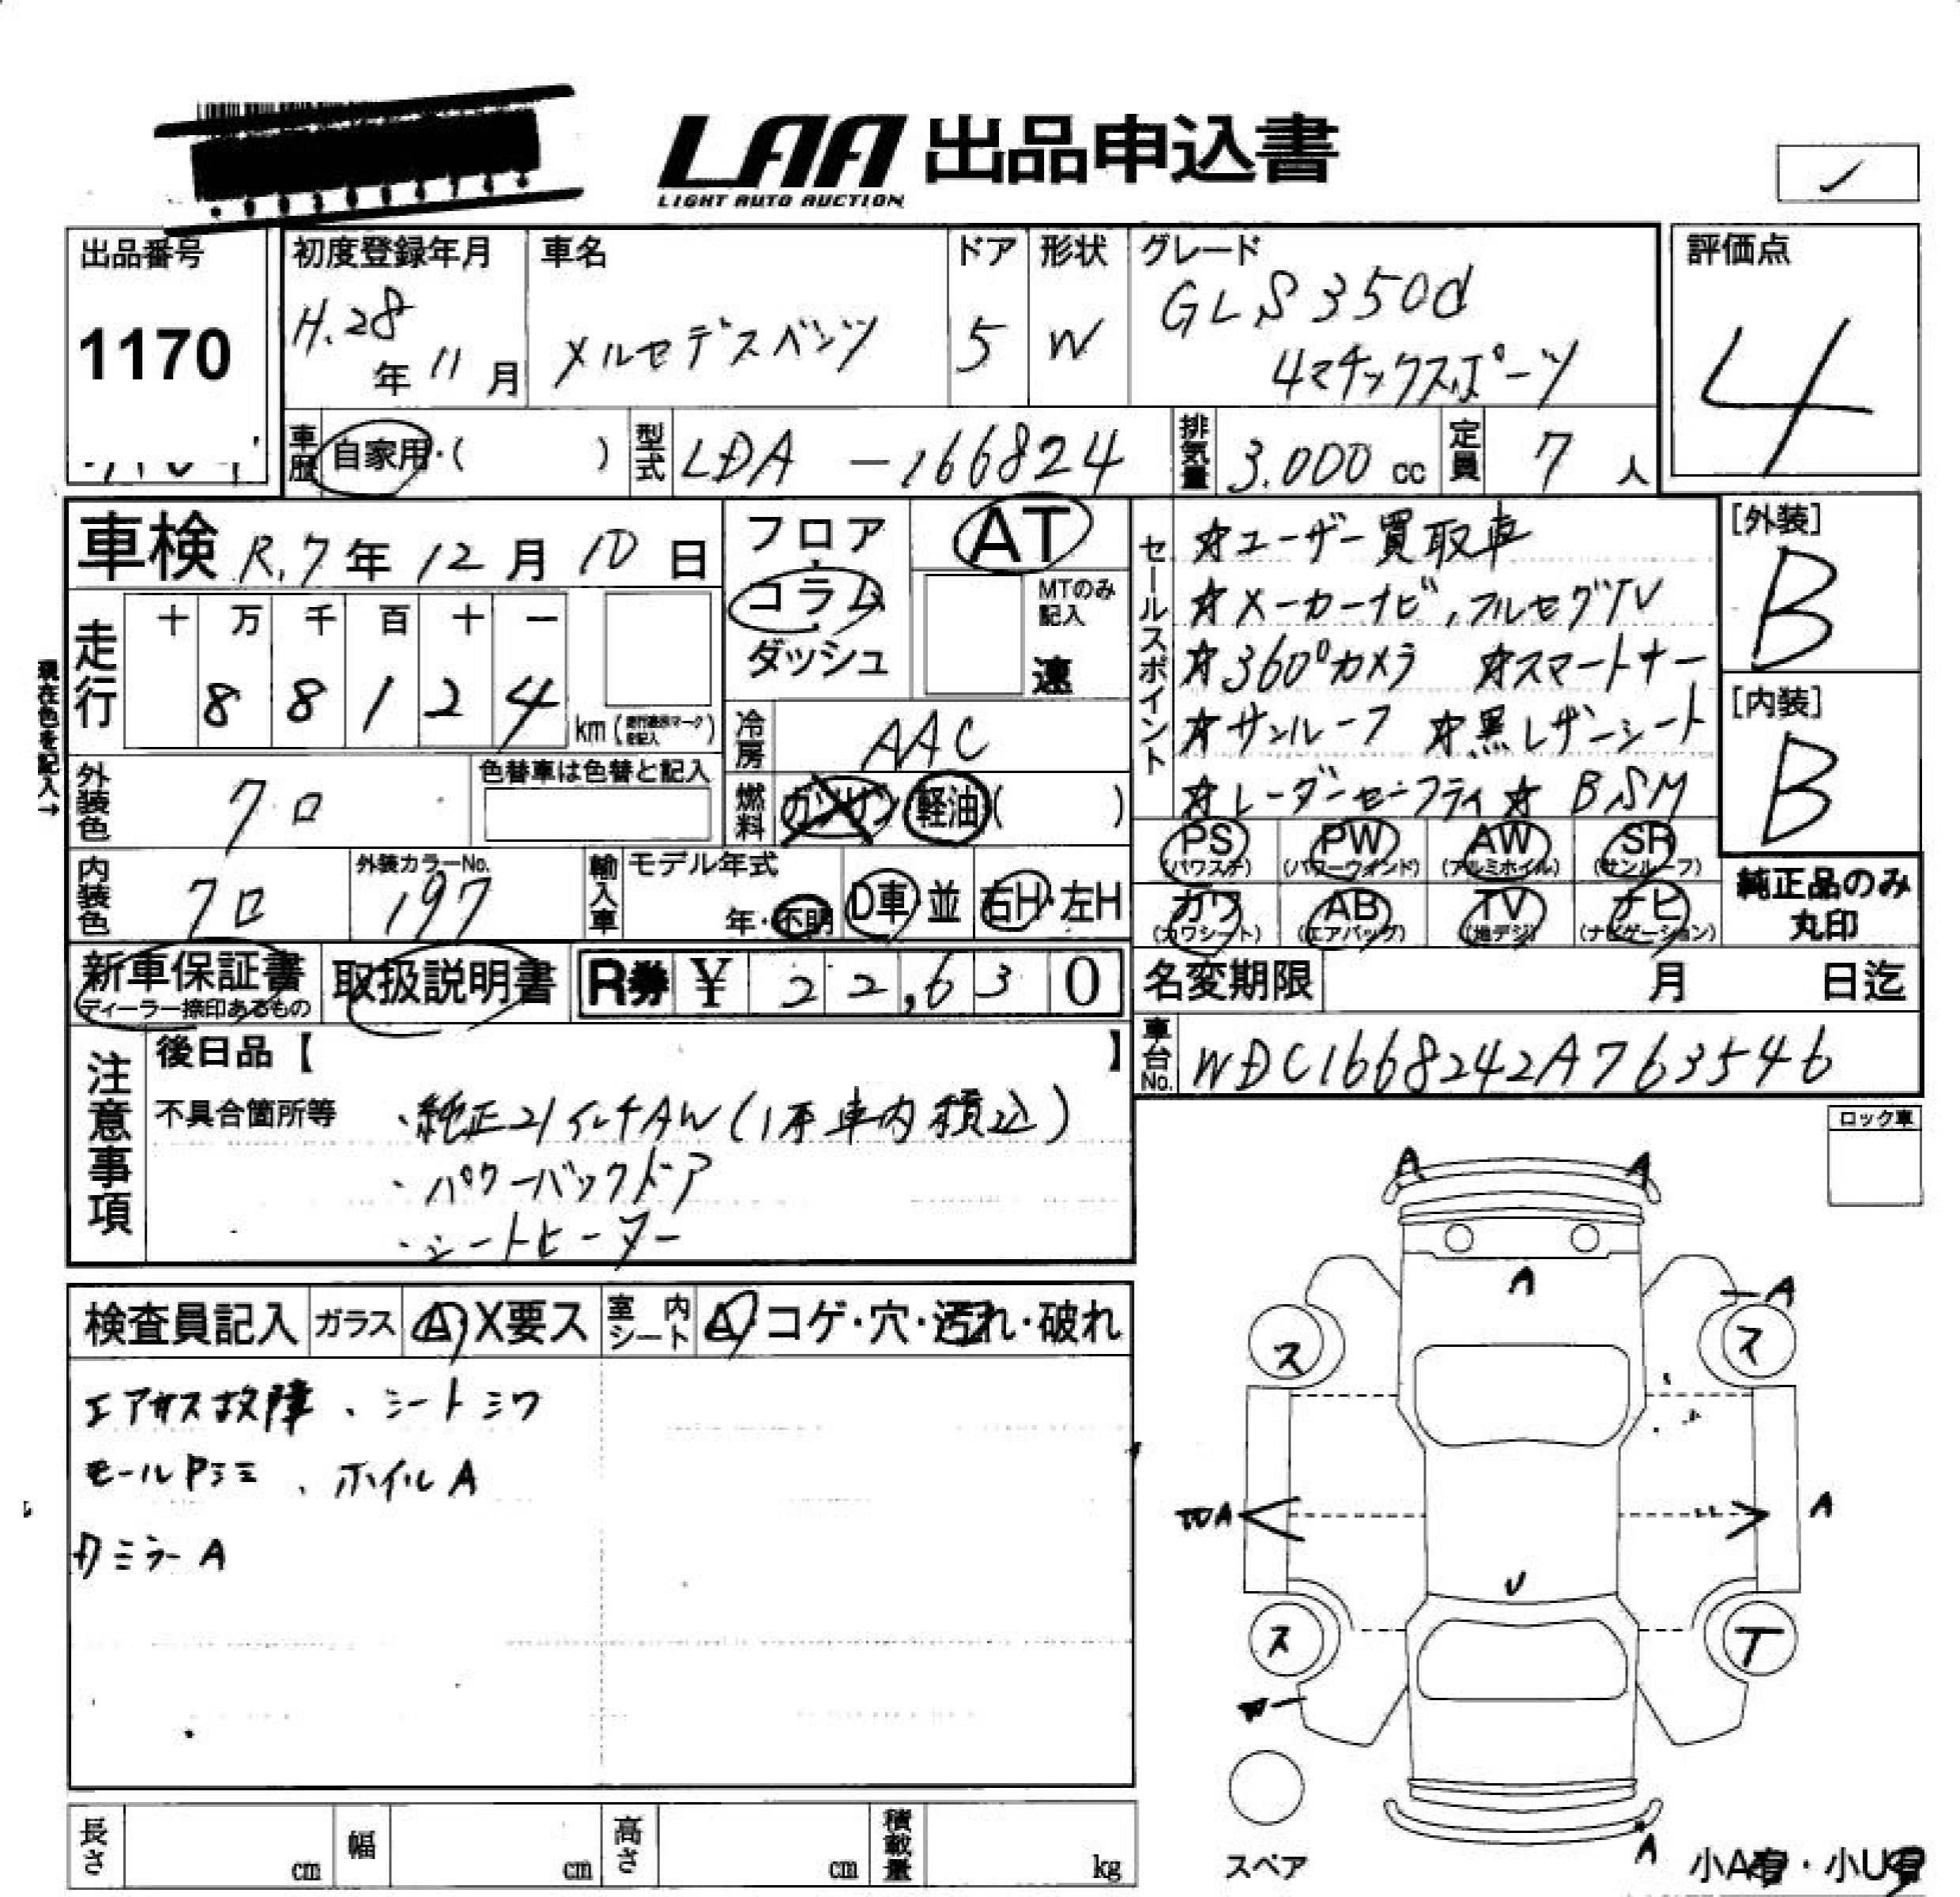 LAA 出品申込書
LIGHT AUTO AUCTION
✓
出品番号
1170
初度登録年月
H.28年11月
車名
メルセデスベンツ
ドア
5
形状
W
グレード
GLS350d
4マチックスポーツ
評価点
4
車歴 自家用・( )
型式 LDA -166824
排気量 3.000 cc
定員 7人
車検 R.7年12月10日
フロア・コラム・ダッシュ
AT
MTのみ記入
速
セールスポイント
☆ユーザー買取車
☆メーカーナビ,フルセグTV
☆360°カメラ ☆スマートキー
☆サンルーフ ☆黒レザーシート
☆レーダーセーフティ ☆BSM
[外装]
B
[内装]
B
現在色を記入→
走行
十 万 千 百 十 一
8 8 1 2 4 km
冷房 AAC
外装色 クロ
色替車は色替と記入
燃料 ガソリン 軽油( )
内装色 クロ
外装カラーNo.
197
輸入車
モデル年式
年・不明
D車・並
右H・左H
PS (パワステ)
PW (パワーウインド)
AW (アルミホイル)
SR (サンルーフ)
カワ (カワシート)
AB (エアバック)
TV (地デジ)
ナビ (ナビゲーション)
純正品のみ丸印
新車保証書
ディーラー捺印あるもの
取扱説明書
R券 ¥ 22,630
名変期限 月 日迄
車台No. WDC1668242A763546
注意事項
後日品【 】
不具合箇所等
・純正21インチAW(1本車内積込)
・パワーバックドア
・シートヒーター
ロック車
検査員記入
ガラス A・X要ス
室内シート A・コゲ・穴・汚れ・破れ
エアサス故障、シートシワ
モールシミ、ホイルA
ミラーA
A A
A
A
ス ス
A A
U
ス T
A
スペア
小A有・小U有
長さ cm
幅 cm
高さ cm
積載量 kg